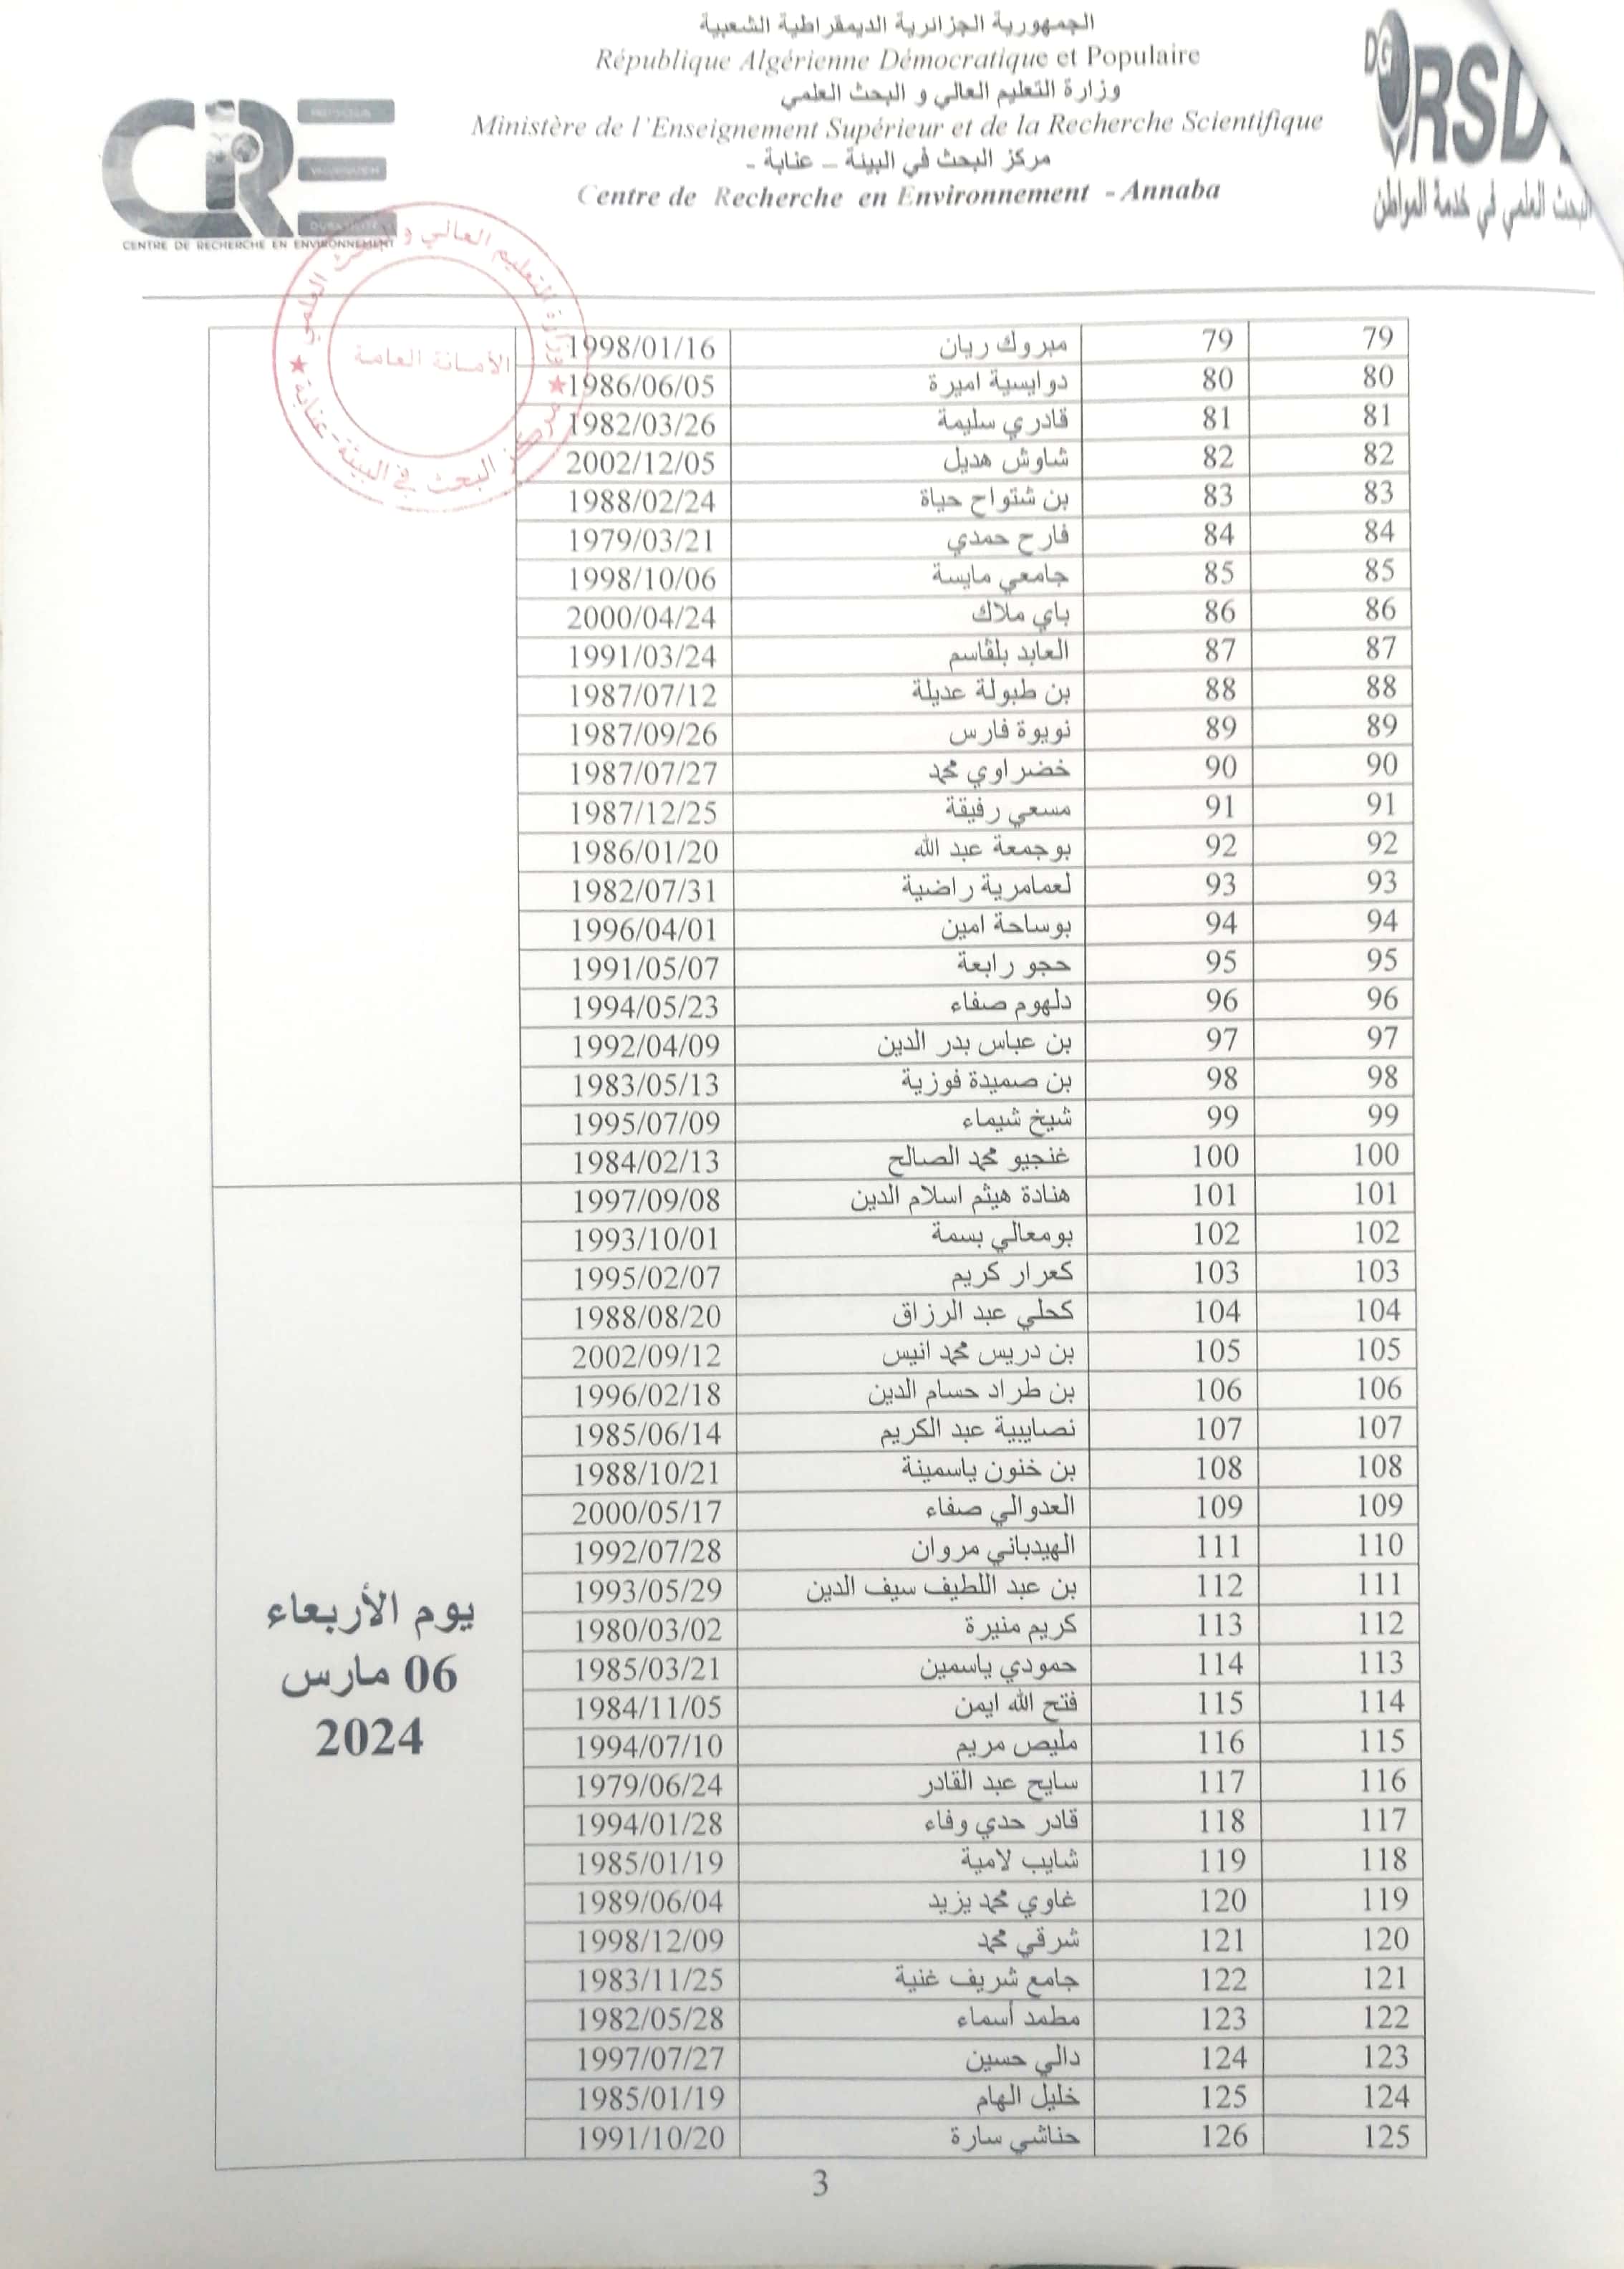 الجمهورية الجزائرية الديمقراطية الشعبية
République Algérienne Démocratique et Populaire
وزارة التعليم العالي و البحث العلمي
Ministère de l'Enseignement Supérieur et de la Recherche Scientifique
مركز البحث في البيئة – عنابة -
Centre de Recherche en Environnement - Annaba
CRE
CENTRE DE RECHERCHE EN ENVIRONNEMENT
DG RSD
البحث العلمي في خدمة المواطن
وزارة التعليم العالي و البحث العلمي
الأمانة العامة
مركز البحث في البيئة - عنابة
79 79 مبروك ريان 1998/01/16
80 80 دوايسية اميرة 1986/06/05
81 81 قادري سليمة 1982/03/26
82 82 شاوش هديل 2002/12/05
83 83 بن شتواح حياة 1988/02/24
84 84 فارح حمدي 1979/03/21
85 85 جامعي مايسة 1998/10/06
86 86 باي ملاك 2000/04/24
87 87 العابد بلقاسم 1991/03/24
88 88 بن طبولة عديلة 1987/07/12
89 89 نويوة فارس 1987/09/26
90 90 خضراوي محمد 1987/07/27
91 91 مسعي رفيقة 1987/12/25
92 92 بوجمعة عبد الله 1986/01/20
93 93 لعمامرية راضية 1982/07/31
94 94 بوساحة امين 1996/04/01
95 95 حجو رابعة 1991/05/07
96 96 دلهوم صفاء 1994/05/23
97 97 بن عباس بدر الدين 1992/04/09
98 98 بن صميدة فوزية 1983/05/13
99 99 شيخ شيماء 1995/07/09
100 100 غنجيو محمد الصالح 1984/02/13
101 101 هنادة هيثم اسلام الدين 1997/09/08
102 102 بومعالي بسمة 1993/10/01
103 103 كعرار كريم 1995/02/07
104 104 كحلي عبد الرزاق 1988/08/20
105 105 بن دريس محمد انيس 2002/09/12
106 106 بن طراد حسام الدين 1996/02/18
107 107 نصايبية عبد الكريم 1985/06/14
108 108 بن خنون ياسمينة 1988/10/21
109 109 العدوالي صفاء 2000/05/17
110 111 الهيدباني مروان 1992/07/28
111 112 بن عبد اللطيف سيف الدين 1993/05/29
112 113 كريم منيرة 1980/03/02
113 114 حمودي ياسمين 1985/03/21
114 115 فتح الله ايمن 1984/11/05
115 116 مليص مريم 1994/07/10
116 117 سايح عبد القادر 1979/06/24
117 118 قادر حدي وفاء 1994/01/28
118 119 شايب لامية 1985/01/19
119 120 غاوي محمد يزيد 1989/06/04
120 121 شرقي محمد 1998/12/09
121 122 جامع شريف غنية 1983/11/25
122 123 مطمد أسماء 1982/05/28
123 124 دالي حسين 1997/07/27
124 125 خليل الهام 1985/01/19
125 126 حناشي سارة 1991/10/20
يوم الأربعاء
06 مارس
2024
3